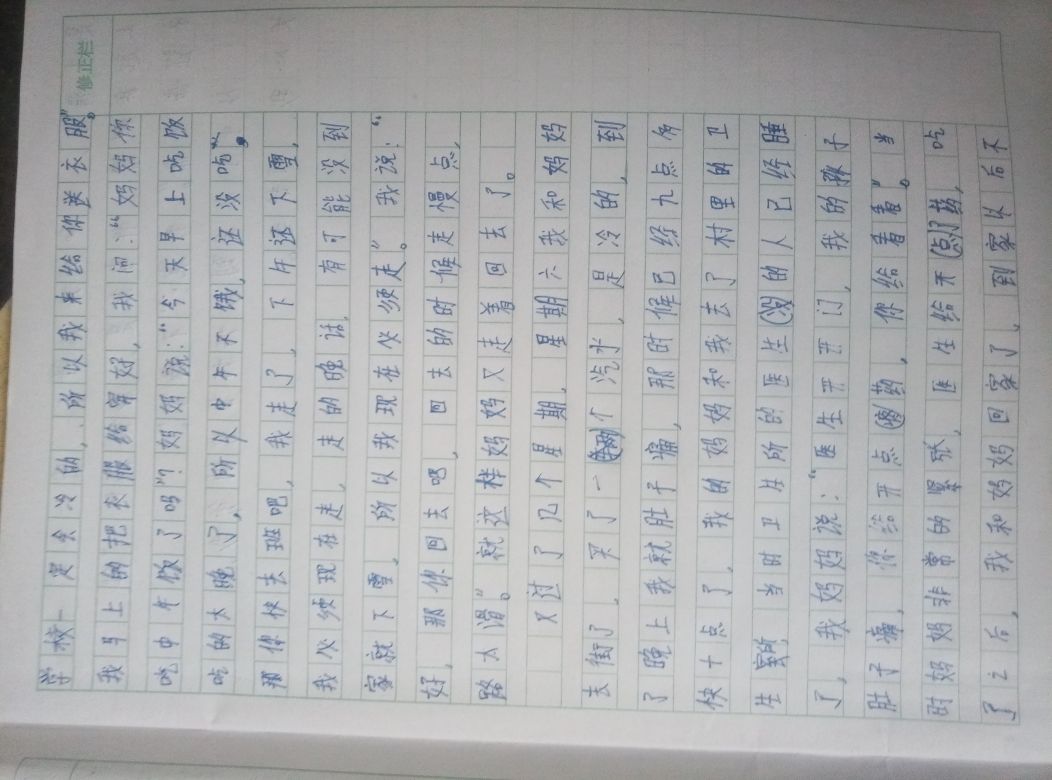 修正栏
学校一定会冷的，所以我来给你送衣服”。
我马上的把衣服给穿好，我问：“妈妈你
吃中午饭了吗”？妈妈说：“今天早上吃饭
吃的太晚了，所以中午不饿，还没吃”，
那你快去班吧，我走了，下午还下雪，
我必须现在走，走的晚话，有可能没到
家就下雪，所以我现在必须走”。我说：“
好，那你回去吧，回去的时候走慢点，
路太滑”。就这样妈妈又走着回去了。
又过了几个星期，星期六我和妈妈
去街了，买了一个汽水，是冷的，到
了晚上我就肚子痛，那时候已经九点多
快十点了，我的妈妈和我去了村里的卫
生所，当时卫生所的医生的人已经睡
了，我妈妈说：“医生开开门，我的孩子
肚子痛，你给开点药，你给看看”。当
时妈妈非常的紧张，医生给开点了药，吃
了之后，我和妈妈回家了，到家以后不